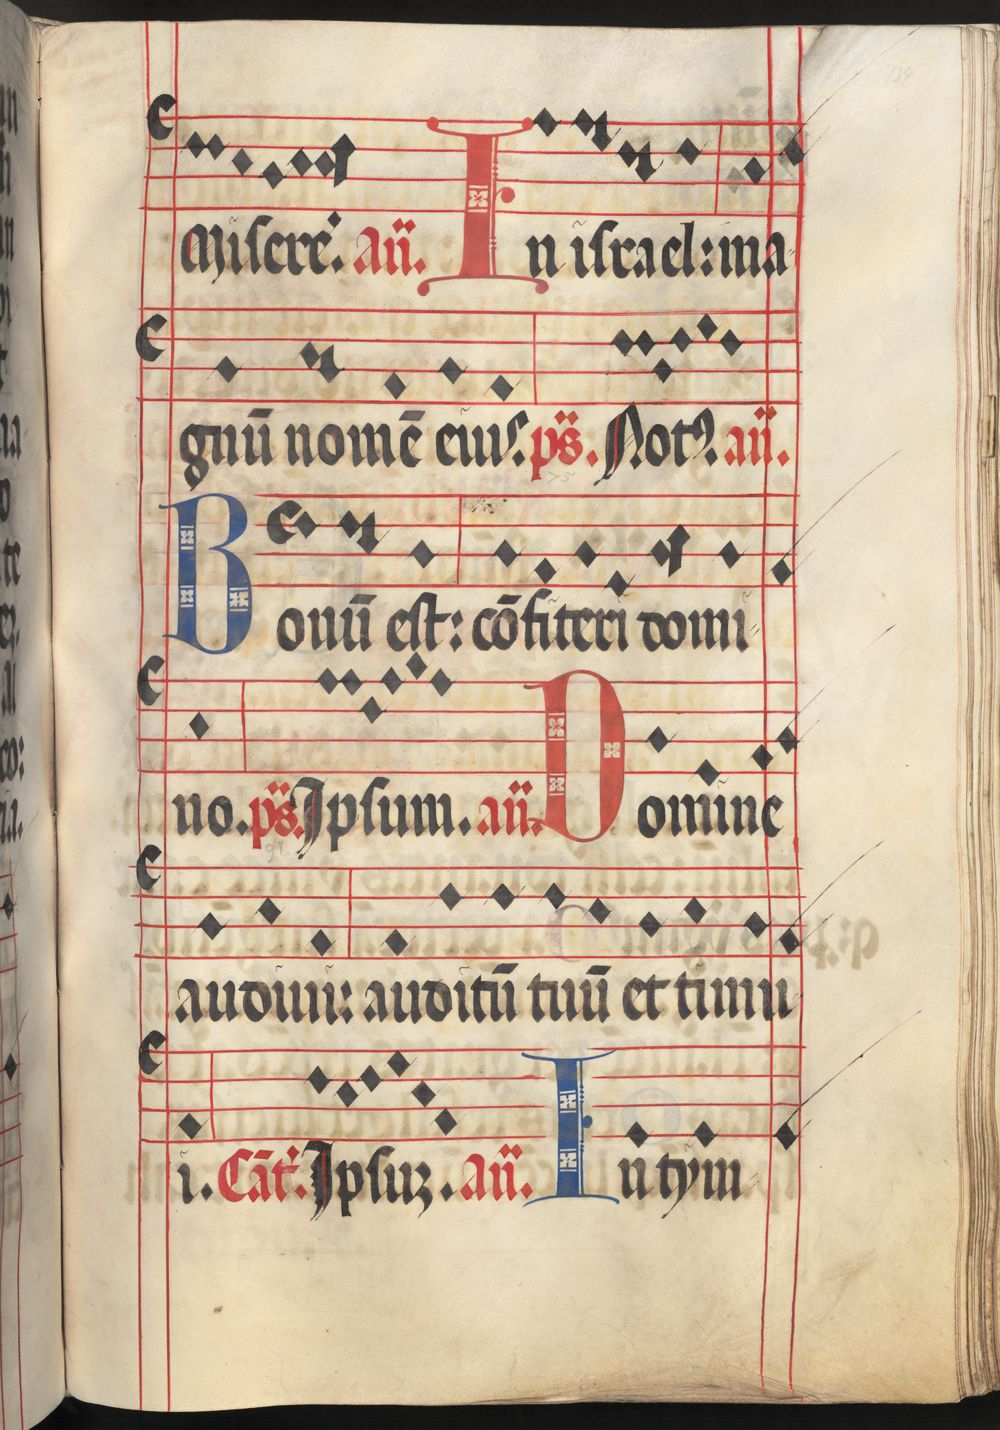 Misere̾. añ. In israel: ma
gnū nomē eius. ps̄. Notꝰ. añ.
Bonū est: cōfiteri domi
no. ps̄. Ipsum. añ. Domine
audiui: auditū tuū et timu
i. Cāt̾. Ipsuꝫ. añ. In tym